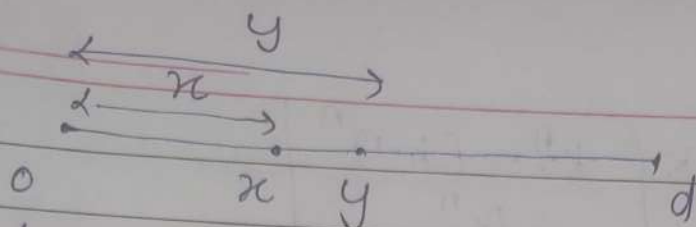 y
x
0 x y d